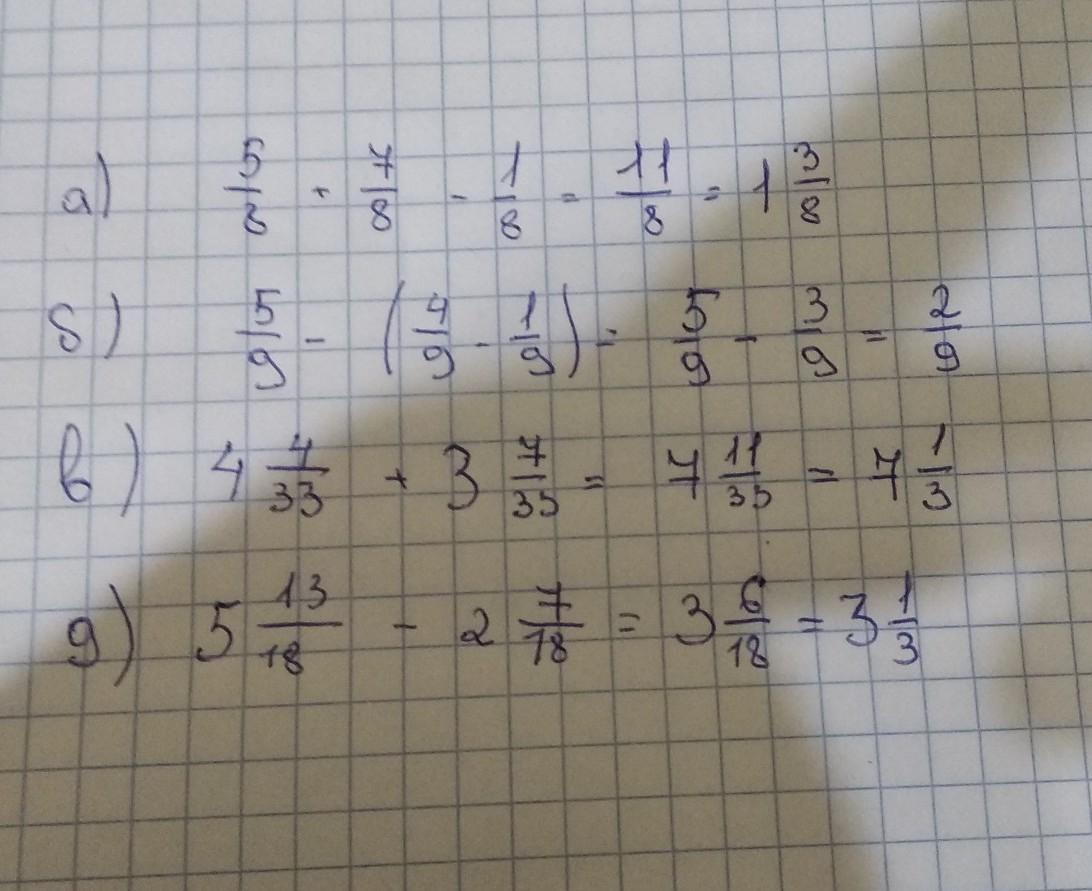 а) 5/8 + 7/8 - 1/8 = 11/8 = 1 3/8
б) 5/9 - (4/9 - 1/9) = 5/9 - 3/9 = 2/9
в) 4 4/33 + 3 7/33 = 7 11/33 = 7 1/3
g) 5 13/18 - 2 7/18 = 3 6/18 = 3 1/3